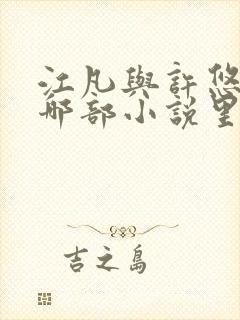 江凡與許悠
那部小說里
吉之島